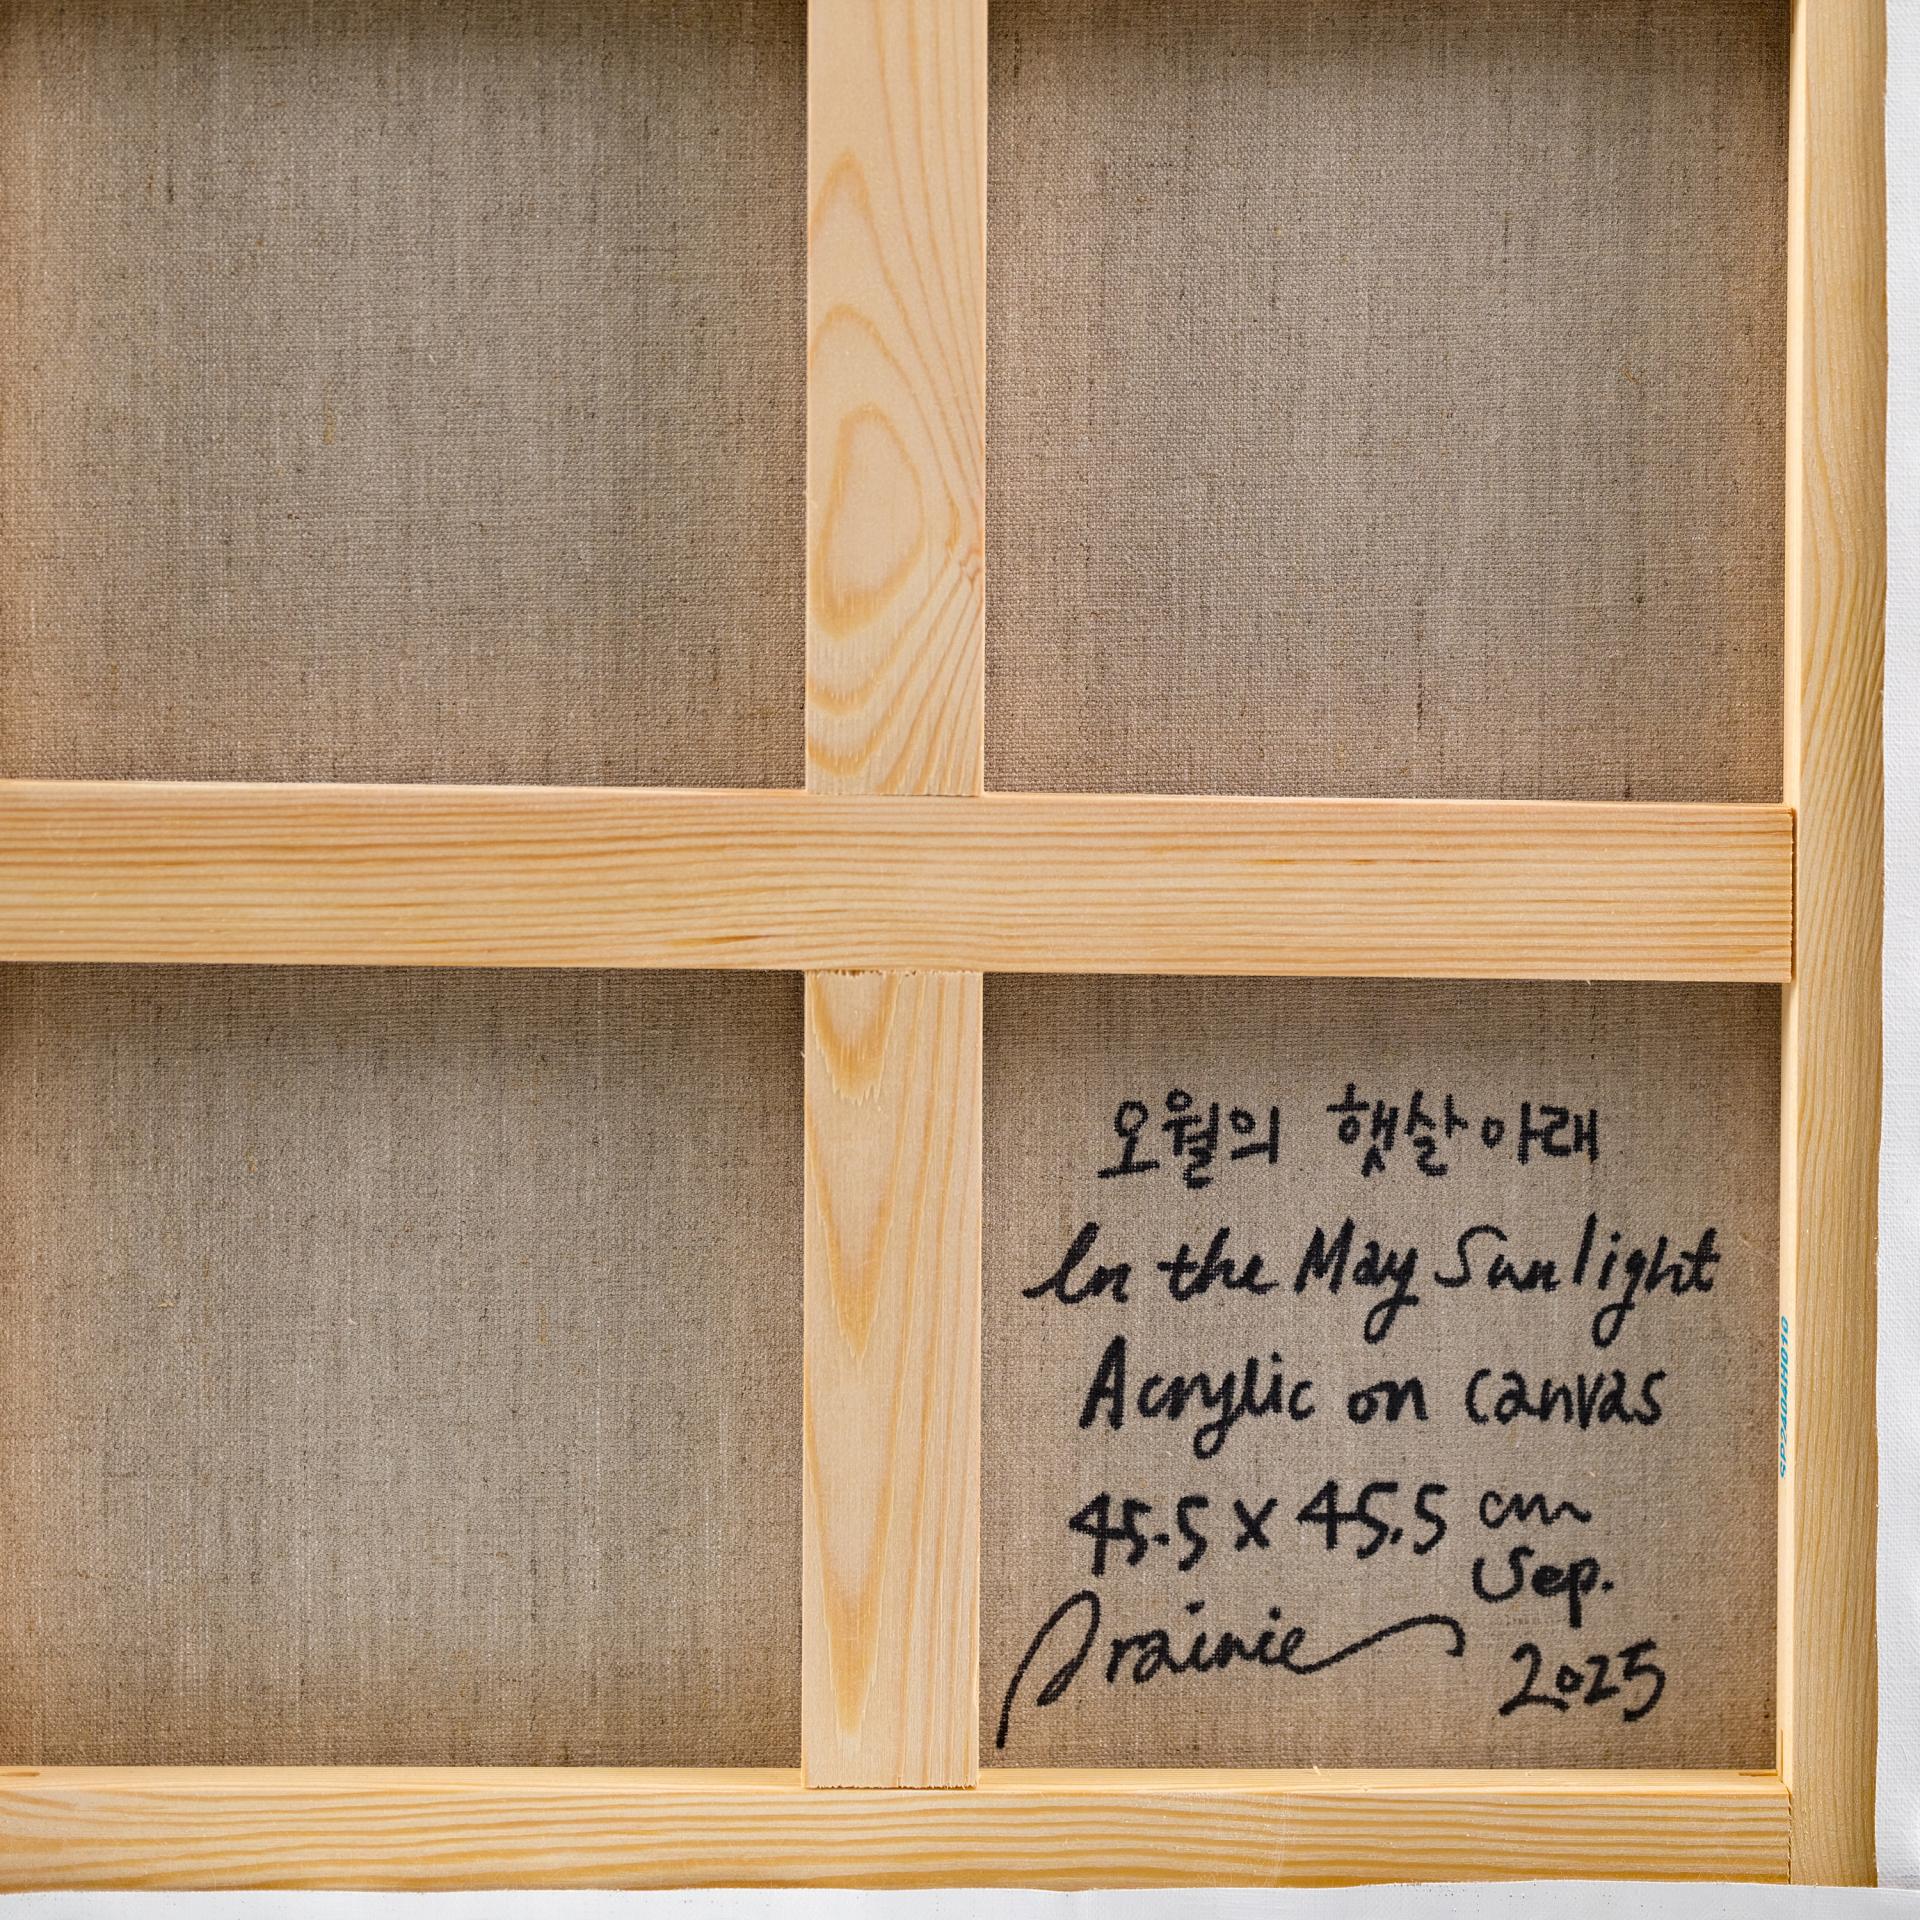 오월의 햇살 아래
In the May Sunlight
Acrylic on canvas
45.5 x 45.5 cm
Sep.
Prairie
2025
SP2404H010